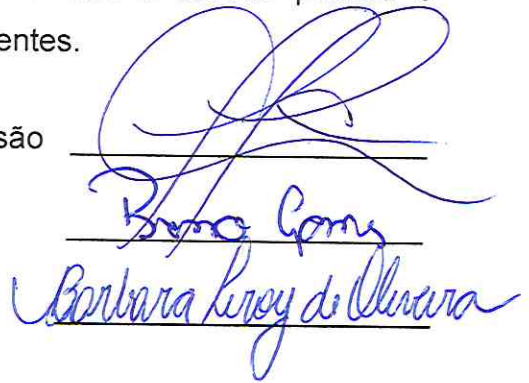 entes.
são
Bruno Gomes
Barbara Leroy de Oliveira